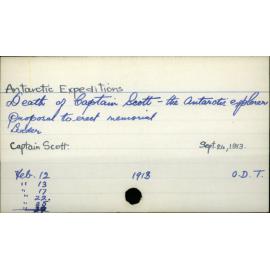 Antarctic Expeditions
Death of Captain Scott - the Antarctic explorer
proposal to erect memorial
Captain Scott. Sept. 24, 1913.
Feb. 12 1913 O.D.T.
" 13
" 17
" 22